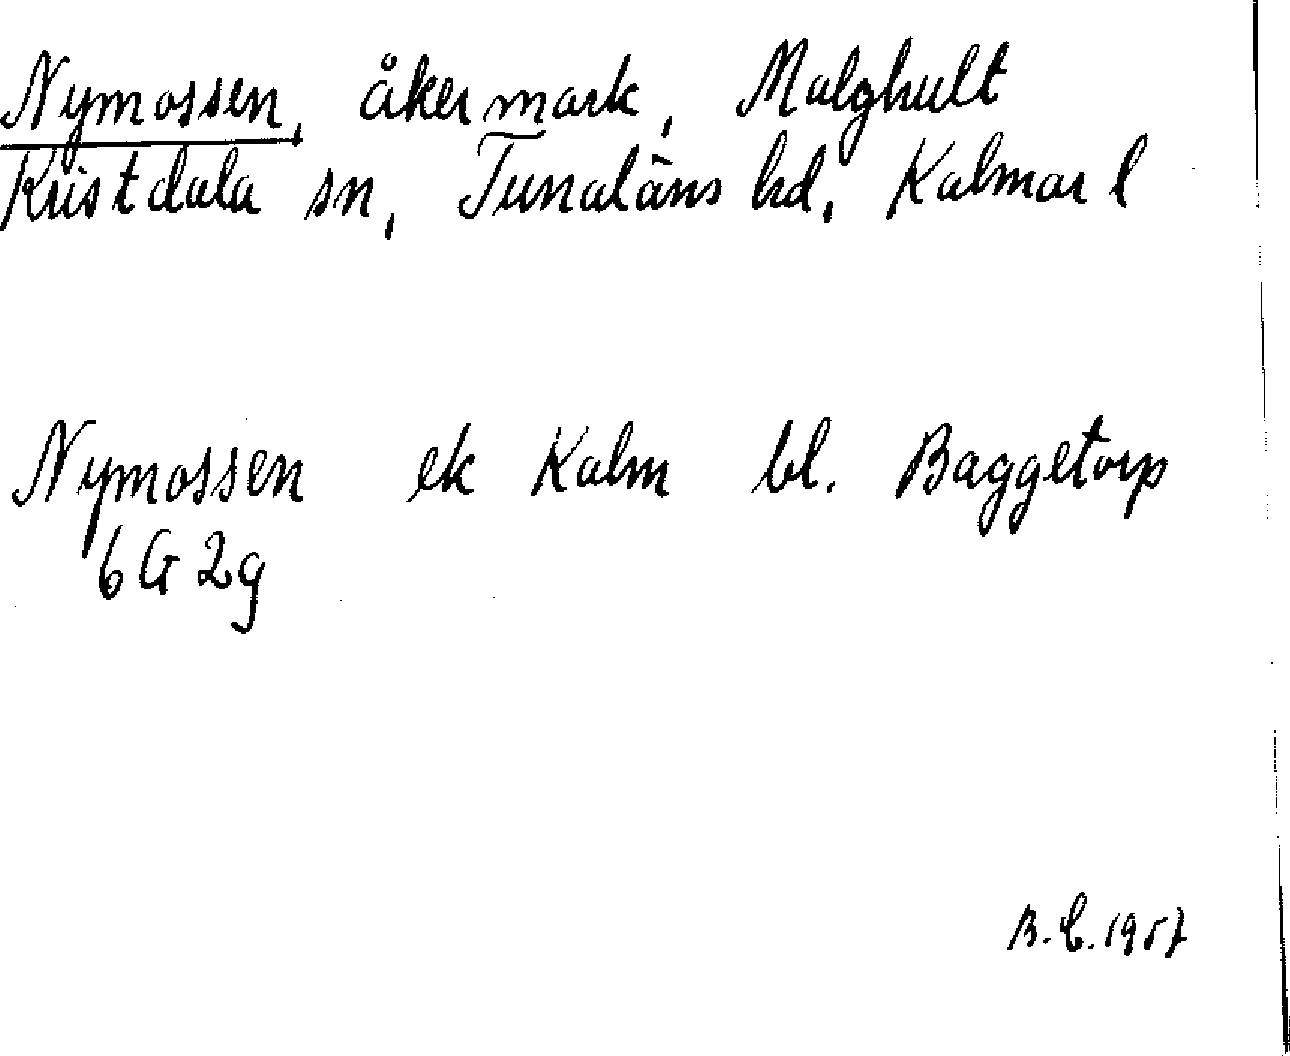 Nymossen, åkermark, Malghult
Kristdala sn, Tunaläns hd, Kalmar l
Nymossen ek Kalm bl. Baggetorp
6G 2g
B.C. 1957